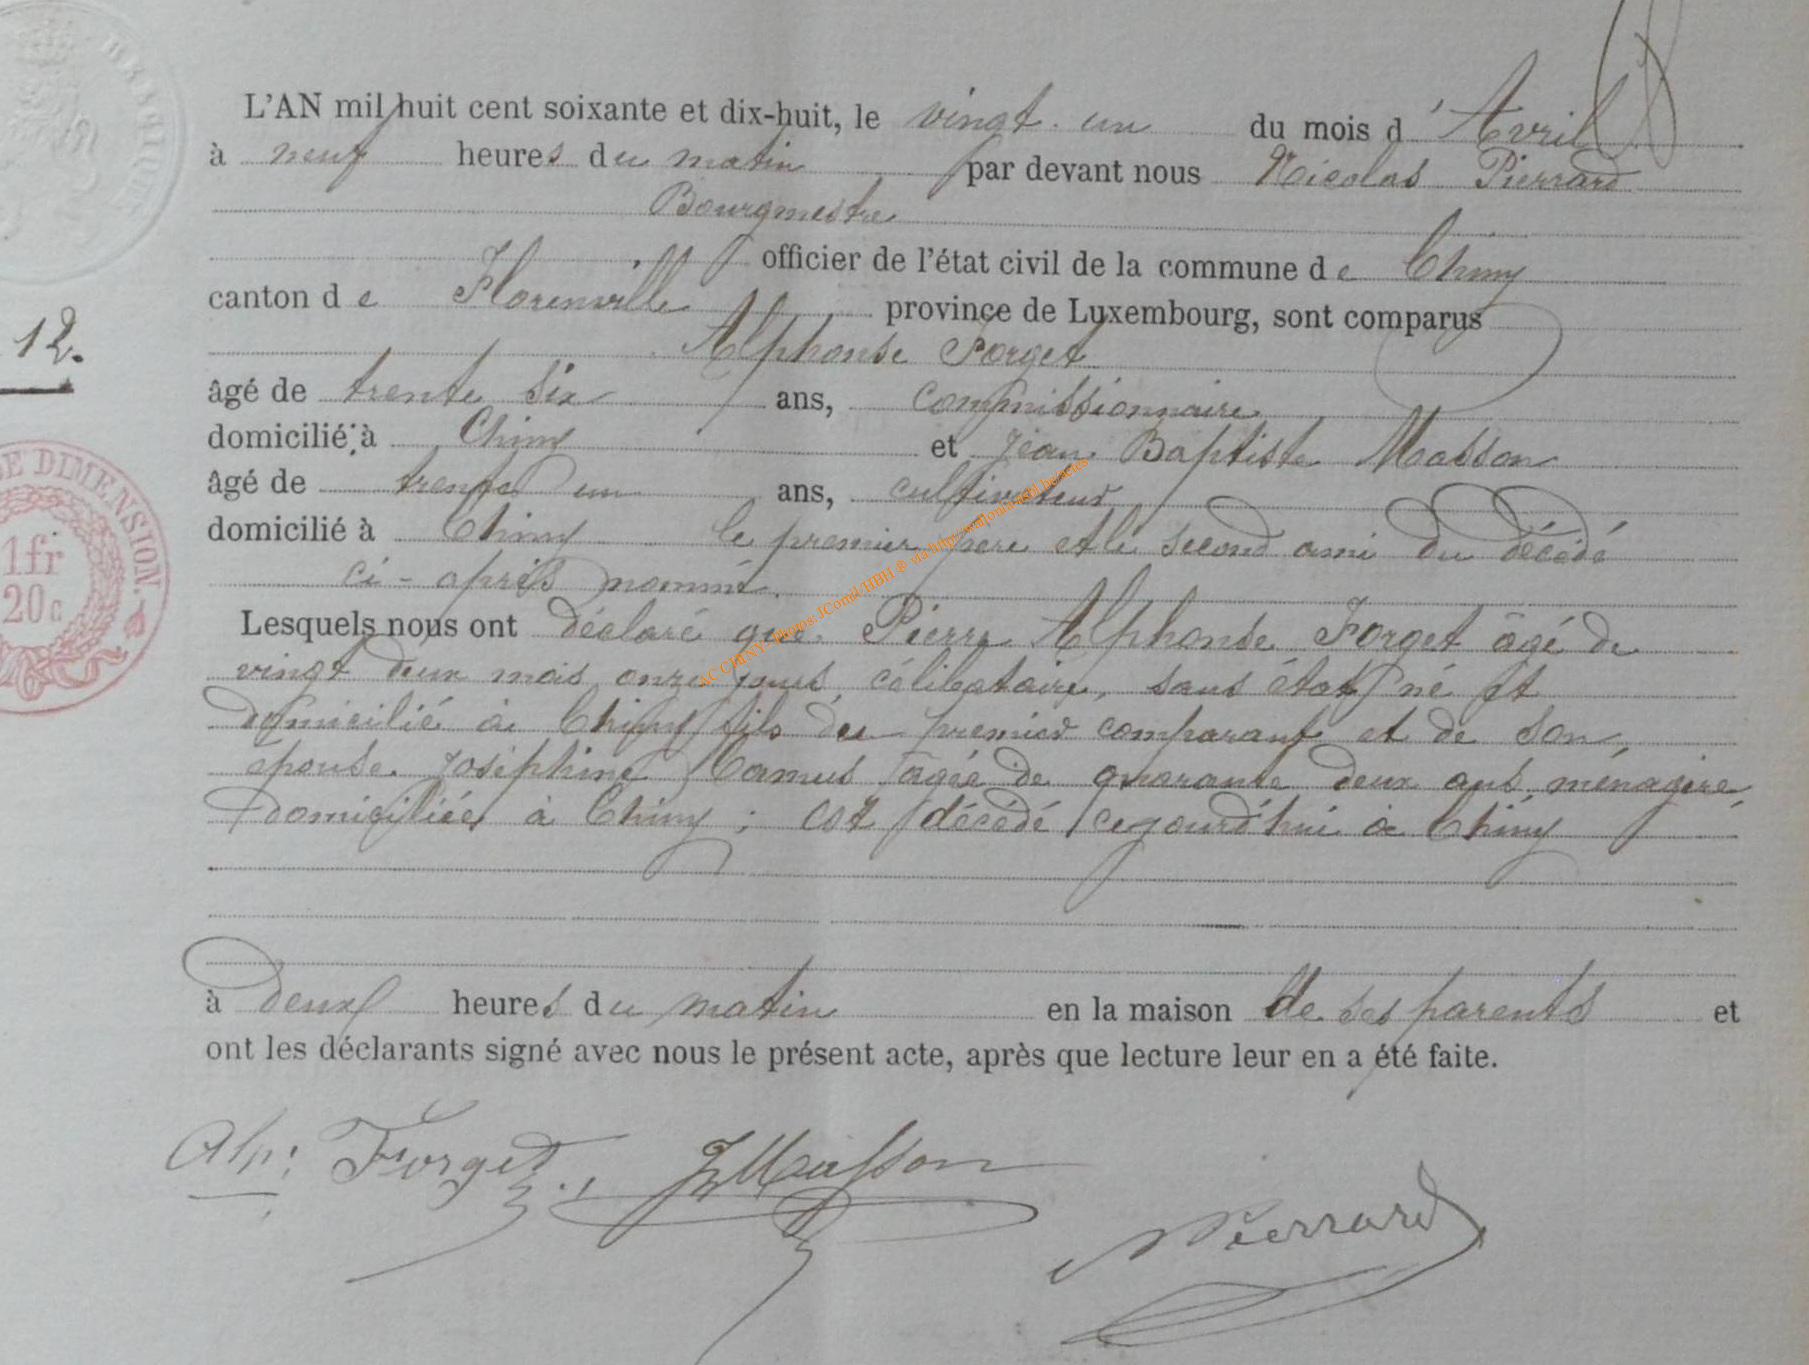 L'AN mil huit cent soixante et dix-huit, le vingt un du mois d'Avril
à neuf heures du matin par devant nous Nicolas Pierrard
Bourgmestre
officier de l'état civil de la commune de Chiny
canton de Florenville province de Luxembourg, sont comparus
12.
Alphonse Forget
âgé de trente six ans, commissionnaire
domicilié à Chiny et Jean Baptiste Masson
âgé de trente un ans, cultivateur
domicilié à Chiny le premier père et le second ami du décédé
ci-après nommé.
Lesquels nous ont déclaré que Pierre Alphonse Forget âgé de
vingt deux mois onze jours, célibataire, sans état, né et
domicilié à Chiny fils du premier comparant et de son
épouse Joséphine Camus âgée de quarante deux ans ménagère
domiciliée à Chiny ; est décédé cejourd'hui à Chiny
à deux heures du matin en la maison de ses parents et
ont les déclarants signé avec nous le présent acte, après que lecture leur en a été faite.
Alp: Forget JBMasson
NPierrard
DE DIMENSION.
1fr
20c
AC CHINY- Photos: JComil/HBH ®